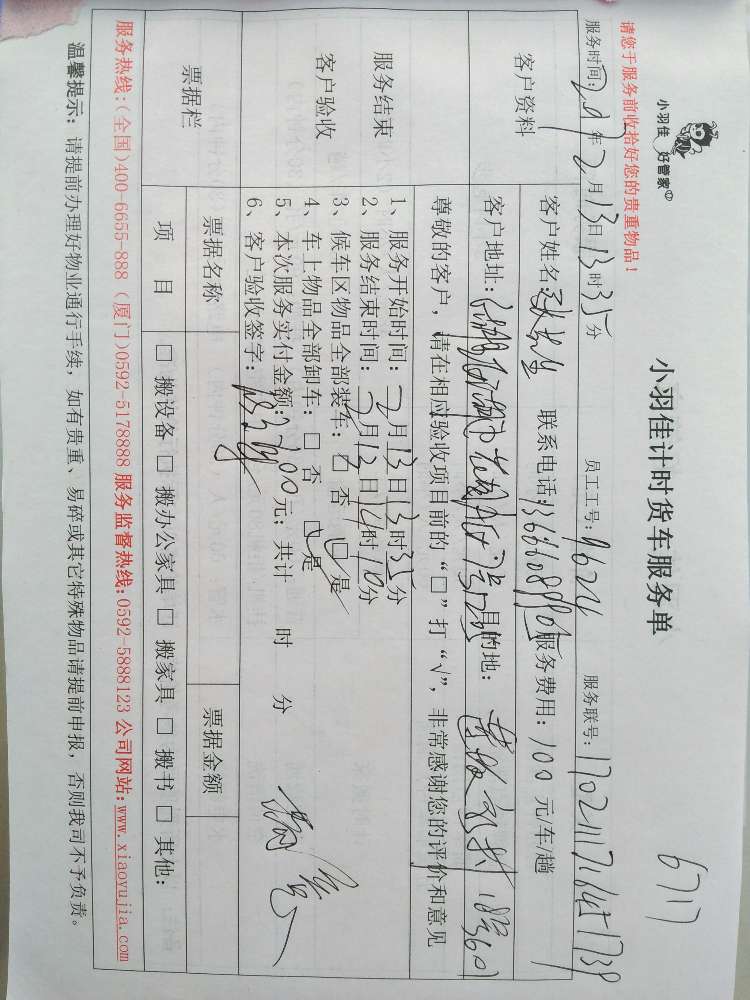 6717
小羽佳 好管家
小羽佳计时货车服务单
请您于服务前收拾好您的贵重物品！
服务时间：2017年2月13日13时35分 员工工号：9624 服务联号：
客户资料
客户姓名： 联系电话： 服务费用：100元/车/趟
客户地址： 目的地：
尊敬的客户，请在相应验收项目前的“□”打“√”，非常感谢您的评价和意见
服务结束
客户验收
1、服务开始时间：2月13日13时35分
2、服务结束时间：2月13日14时10分
3、候车区物品全部装车：□ 否 ☑ 是
4、车上物品全部卸车：□ 否 ☑ 是
5、本次服务实付金额：100元；共计 时 分
6、客户验收签字：
票据栏
票据名称 票据金额
项 目 □ 搬设备 □ 搬办公家具 □ 搬家具 □ 搬书 □ 其他：
服务热线：(全国)400-6655-888 (厦门)0592-5178888 服务监督热线：0592-5888123 公司网站：www.xiaoyujia.com
温馨提示：请提前办理好物业通行手续，如有贵重、易碎或其它特殊物品请提前申报，否则我司不予负责。